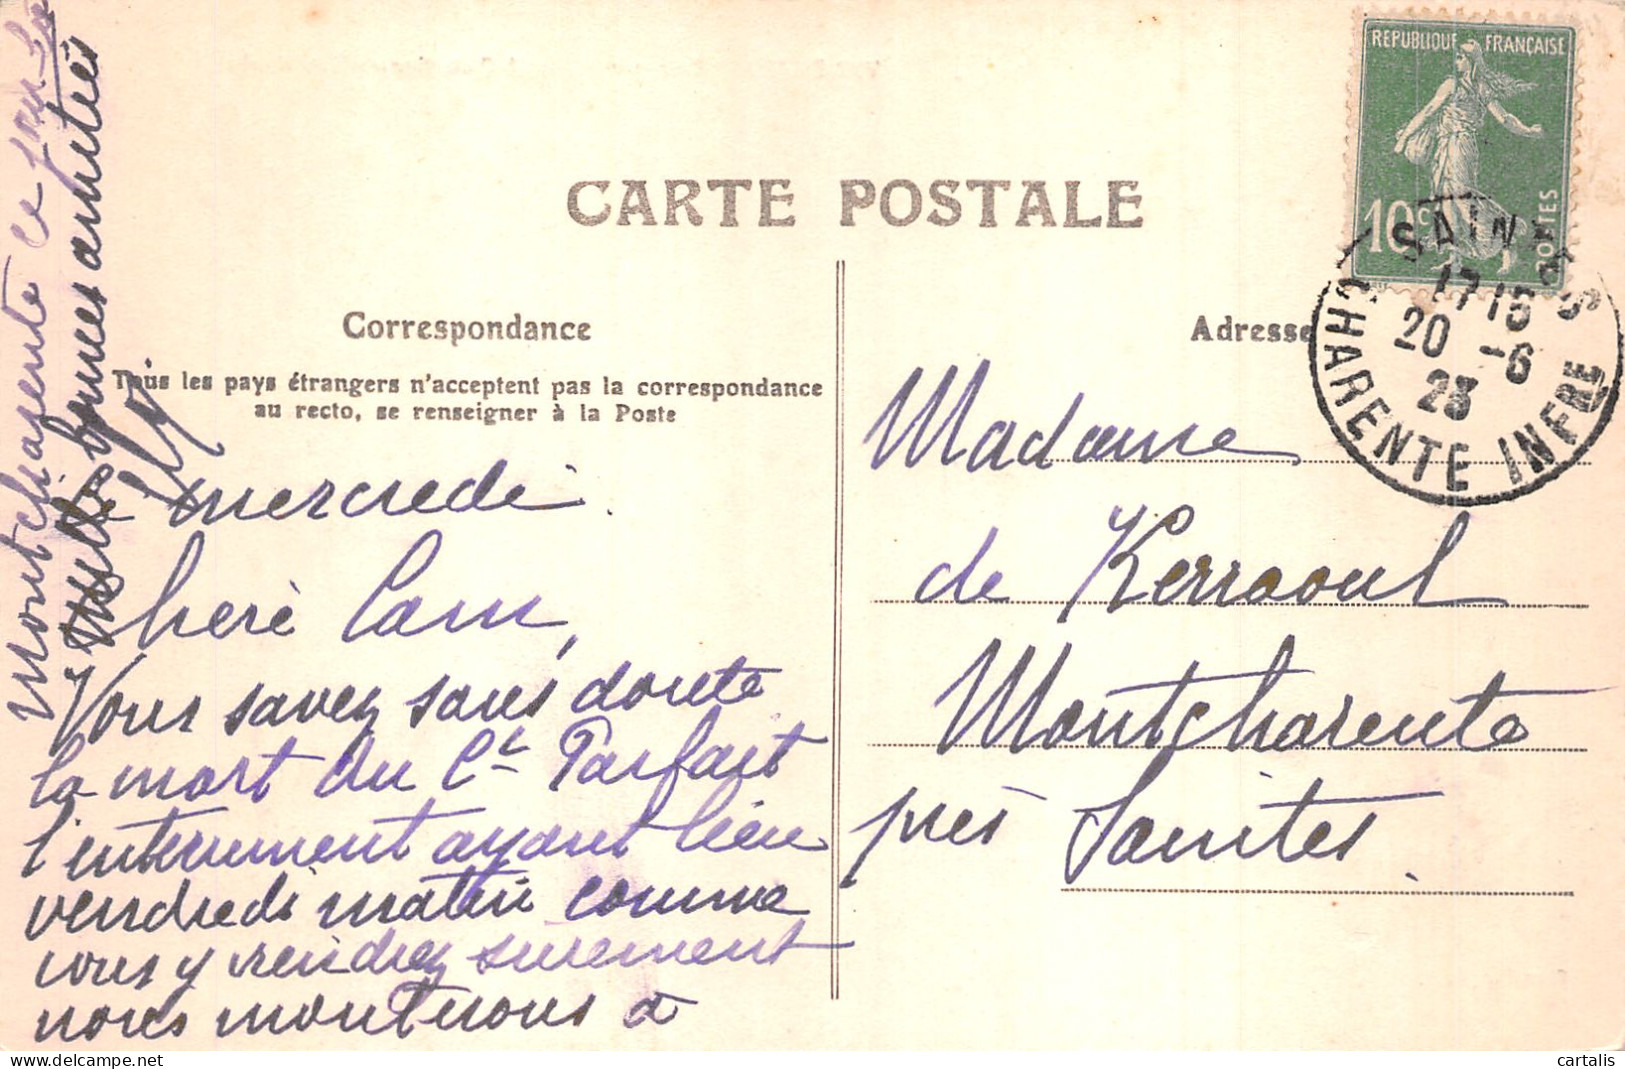 CARTE POSTALE
REPUBLIQUE FRANÇAISE
10c
POSTES
SAINTES
17 15
20 -6
23
CHARENTE INFRE
Correspondance
Tous les pays étrangers n'acceptent pas la correspondance
au recto, se renseigner à la Poste
Adresse
Madame
de Kerraoul
Montcharente
près Saintes.
mercredi
Vous savez sans doute
la mort du Ct Parfait
l'enterrement ayant lieu
vendredi matin comme
vous y viendrez surement
nous monterons à
Montcharente ce jour là
bonnes amitiés
cartalis